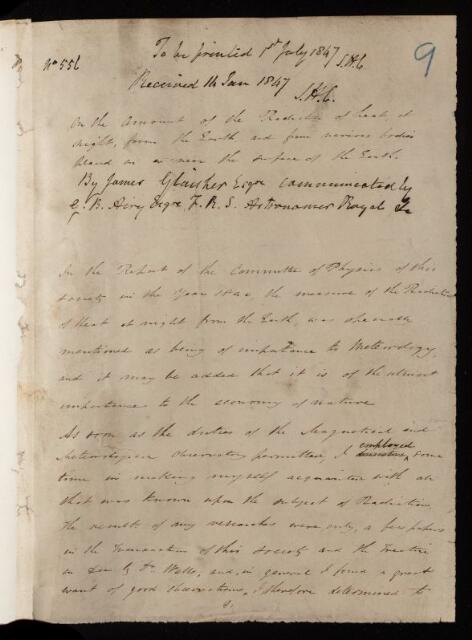 To be printed 1st July 1847 S.H.C.
9
No 556
Received 14 Jan 1847
S.H.C.
On the Amount of the Radiation of heat, at
night, from the Earth, and from various bodies
placed on or near the surface of the Earth.
By James Glaisher Esqre communicated by
G. B. Airy Esqre F.R.S. Astronomer Royal &c
In the Report of the Committee of Physics of this
Society in the Year 1840, the measure of the Radiation
of heat at night from the Earth, was
mentioned as being of importance to Meteorology,
and it may be added that it is of the utmost
importance to the economy of nature
As soon as the duties of the Magnetical and
Meteorological Observatory permitted, I employed some
time in making myself acquainted with all
that was known upon the subject of Radiation,
the results of my researches were only, a few papers
in the Transactions of this Society and the Treatise
on Dew by Dr Wells, and, in general I found a great
want of good observations, I therefore determined to